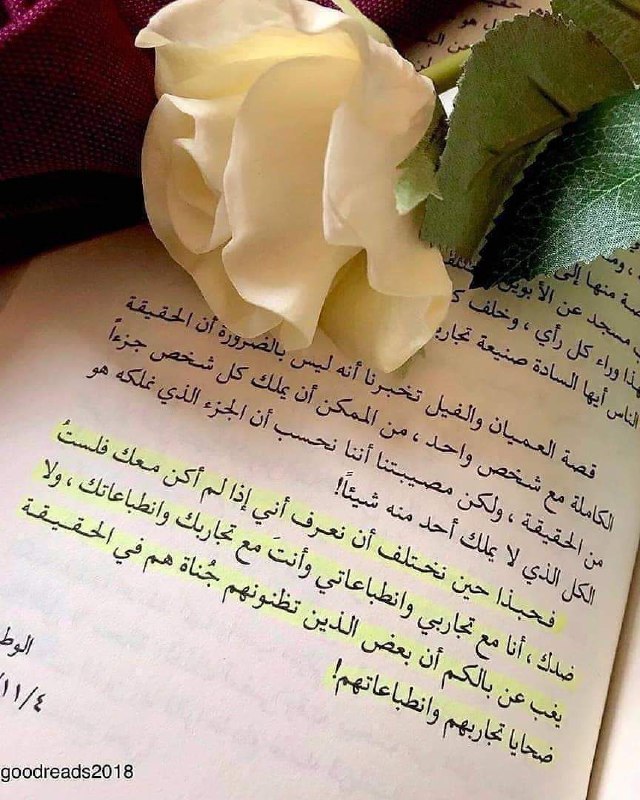 منها إلى
مسجد عن الأبوين
وراء كل رأي ، وخلف
الناس أيها السادة صنيعة
قصة العميان والفيل تخبرنا أنه ليس بالضرورة أن الحقيقة
الكاملة مع شخص واحد ، من الممكن أن يملك كل شخص جزءاً
من الحقيقة ، ولكن مصيبتنا أننا نحسب أن الجزء الذي نملكه هو
الكل الذي لا يملك أحد منه شيئاً!
فحبذا حين نختلف أن نعرف أني إذا لم أكن معك فلستُ
ضدك ، أنا مع تجاربي وانطباعاتي وأنتَ مع تجاربك وانطباعاتك ، ولا
يغب عن بالكم أن بعض الذين تظنونهم جُناة هم في الحقيقة
ضحايا تجاربهم وانطباعاتهم!
الوط
/١١/٤
goodreads2018